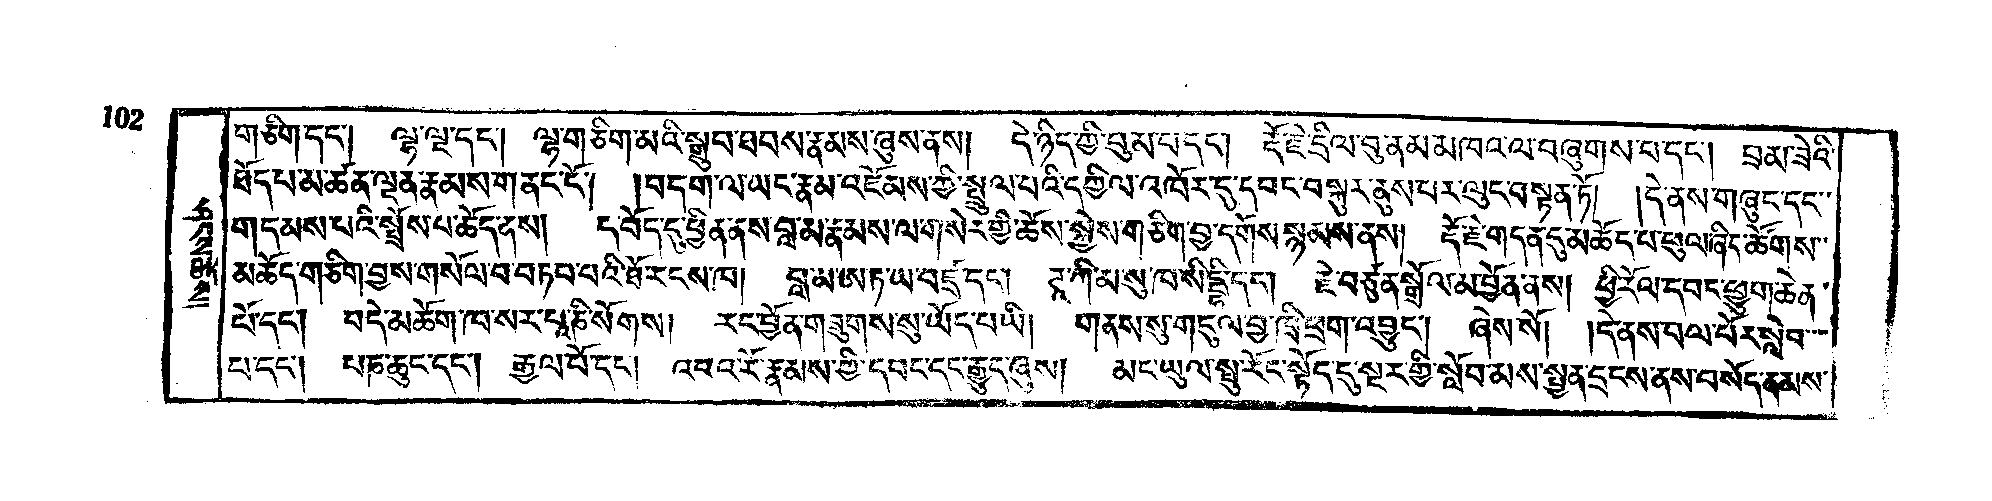 102
གཅིག་དང་། ལྷ་ལྔ་དང་། ལྷ་གཅིག་མའི་སྒྲུབ་ཐབས་རྣམས་ཞུས་ནས། དེ་ཉིད་ཀྱི་བུམ་པ་དང་། རྡོ་རྗེ་དྲིལ་བུ་ནམ་མཁའ་ལ་བཞུགས་པ་དང་། བྲམ་ཟེའི་
ཐོད་པ་མཚན་ལྡན་རྣམས་གནང་ངོ་། །བདག་ལ་ཡང་རྣམ་འཇོམས་ཀྱི་སྤྲུལ་པའི་དཀྱིལ་འཁོར་དུ་དབང་བསྐུར་ནུས་པར་ལུང་བསྟན་ཏོ། །དེ་ནས་གཞུང་དང་
གདམས་པའི་སྤྲོས་པ་ཆོད་ནས། ད་བོད་དུ་ཕྱིན་ནས་བླ་མ་རྣམས་ལ་གསེར་གྱི་ཆོས་སྐྱེས་གཅིག་བྱ་དགོས་སྙམས་ནས། རྡོ་རྗེ་གདན་དུ་མཆོད་པ་ཕུལ་ཞིང་ཚོགས་
མཆོད་གཅིག་བྱས་གསོལ་བ་བཏབ་པའི་ཐོ་རངས་ཁ། བླ་མ་ཨ་ཏ་ཡ་བཛྲ་དང་། ཌཱ་ཀི་མ་སུ་ཁ་སིདྡྷི་དང་། རྗེ་བཙུན་སྒྲོལ་མ་བྱོན་ནས། ཕྱི་རོལ་དབང་ཕྱུག་ཆེན་
པོ་དང་། བདེ་མཆོག་ཁ་སར་པཱ་ཎི་སོགས། རང་བྱོན་གཟུགས་སུ་ཡོད་པ་ཡི། གནས་སུ་གདུལ་བྱ་ཁྲི་ཕྲག་འབྱུང་། ཞེས་སོ། །དེ་ནས་བལ་པོར་སླེབ་
པ་དང་། པཎ་ཆུང་དང་། རྒྱལ་པོ་དང་། འབའ་རོ་རྣམས་ཀྱི་དབང་དང་རྒྱུད་ཞུས། མང་ཡུལ་སྤུ་རོང་སྟོད་དུ་སྔར་གྱི་སློབ་མས་སྤྱན་དྲངས་ནས་བསོད་ནམས་